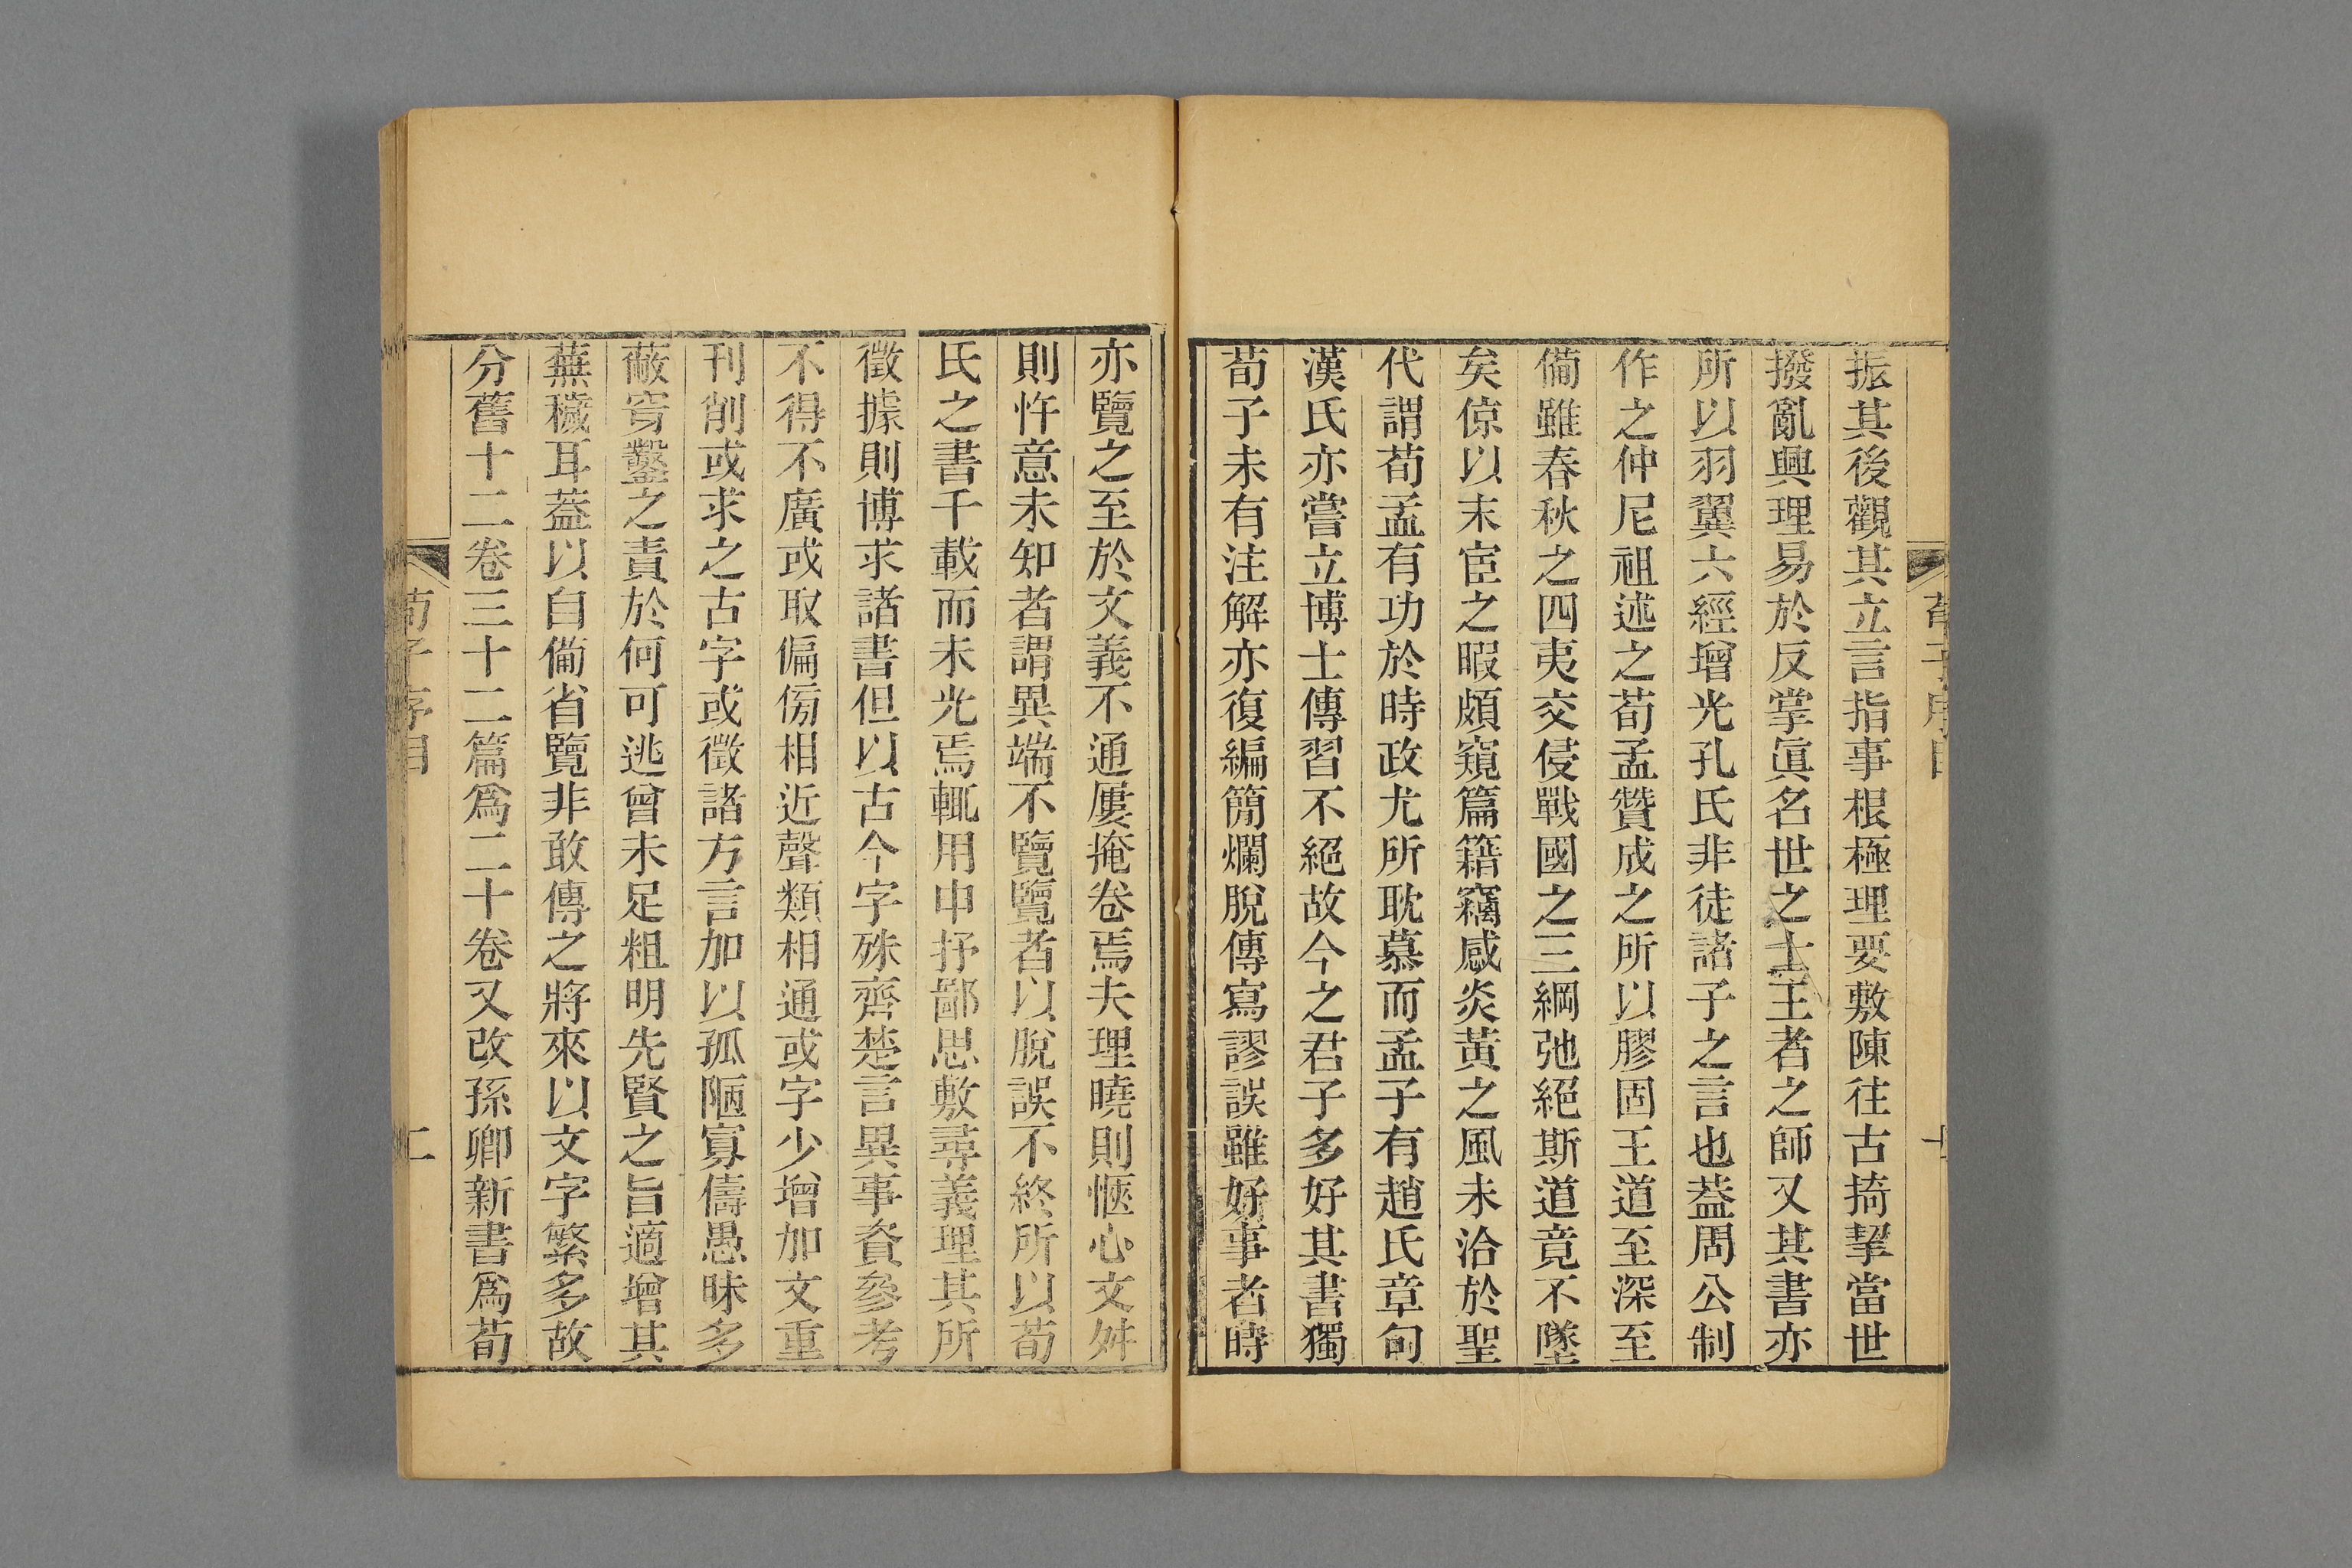 振其後觀其立言指事根極理要敷陳往古掎挈當世
撥亂興理易於反掌眞名世之士王者之師又其書亦
所以羽翼六經增光孔氏非徒諸子之言也葢周公制
作之仲尼祖述之荀孟贊成之所以膠固王道至深至
僃雖春秋之四夷交侵戰國之三綱弛絕斯道竟不墜
矣倞以末宦之暇頗窺篇籍竊感炎黃之風未洽於聖
代謂荀孟有功於時政尤所耽慕而孟子有趙氏章句
漢氏亦嘗立博士傳習不絕故今之君子多好其書獨
荀子未有注解亦復編簡爛脫傳寫謬誤雖好事者時
亦覽之至於文義不通屢掩卷焉夫理曉則愜心文舛
則忤意未知者謂異端不覽覽者以脫誤不終所以荀
氏之書千載而未光焉輒用申抒鄙思敷尋義理其所
徵據則博求諸書但以古今字殊齊楚言異事資參考
不得不廣或取偏傍相近聲類相通或字少增加文重
刊削或求之古字或徵諸方言加以孤陋寡儔愚昧多
蔽穿鑿之責於何可逃曾未足粗明先賢之旨適增其
蕪穢耳葢以自僃省覽非敢傳之將來以文字繁多故
分舊十二卷三十二篇爲二十卷又改孫卿新書爲荀
荀子序目
二